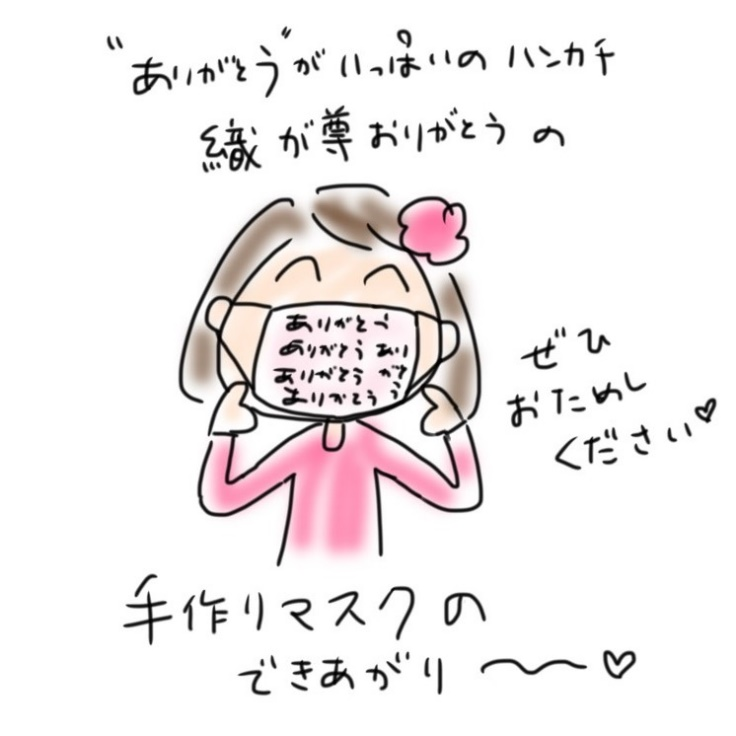 "ありがとう"がいっぱいのハンカチ
織が尊おりがとうの
ありがとう
ありがとう あり
ありがとう がと
ありがとう う
ぜひ
おためし
ください♡
手作りマスクの
できあがり〜〜♡